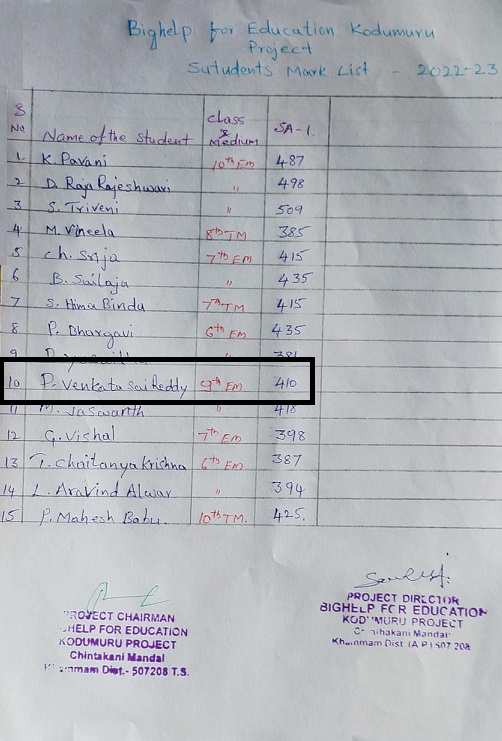 Bighelp for Education Kodumuru
Project
Sutudents Mark List - 2022-23
S No Name of the student class & Medium SA-1.
1. K. Pavani 10th EM 487
2 D. Raja Rajeshwari " 498
3 S. Triveni " 509
4 M. Vineela 8th TM 385
5 Ch. Srija 7th EM 415
6 B. Sailaja " 435
7 S. Hima Bindu 7th TM 415
8 P. Bhargavi 6th EM 435
9 " 381
10 P. Venkata Sai Reddy 9th EM 410
11 M. Jaswanth 418
12 G. Vishal 7th EM 398
13 T. Chaitanya Krishna 6th EM 387
14 L. Aravind Alwar " 394
15 P. Mahesh Babu. 10th TM. 425.
PROJECT CHAIRMAN
HELP FOR EDUCATION
KODUMURU PROJECT
Chintakani Mandal
Dist.- 507208 T.S.
PROJECT DIRECTOR
BIGHELP FOR EDUCATION
KODUMURU PROJECT
Mandal
Khammam Dist (A.P) 507 208